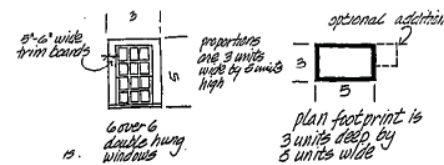 3
5"-6" wide
trim boards
5
proportions
are 3 units
wide by 5 units
high
6 over 6
double hung
windows
15.
optional addition
3
5
plan footprint is
3 units deep by
5 units wide